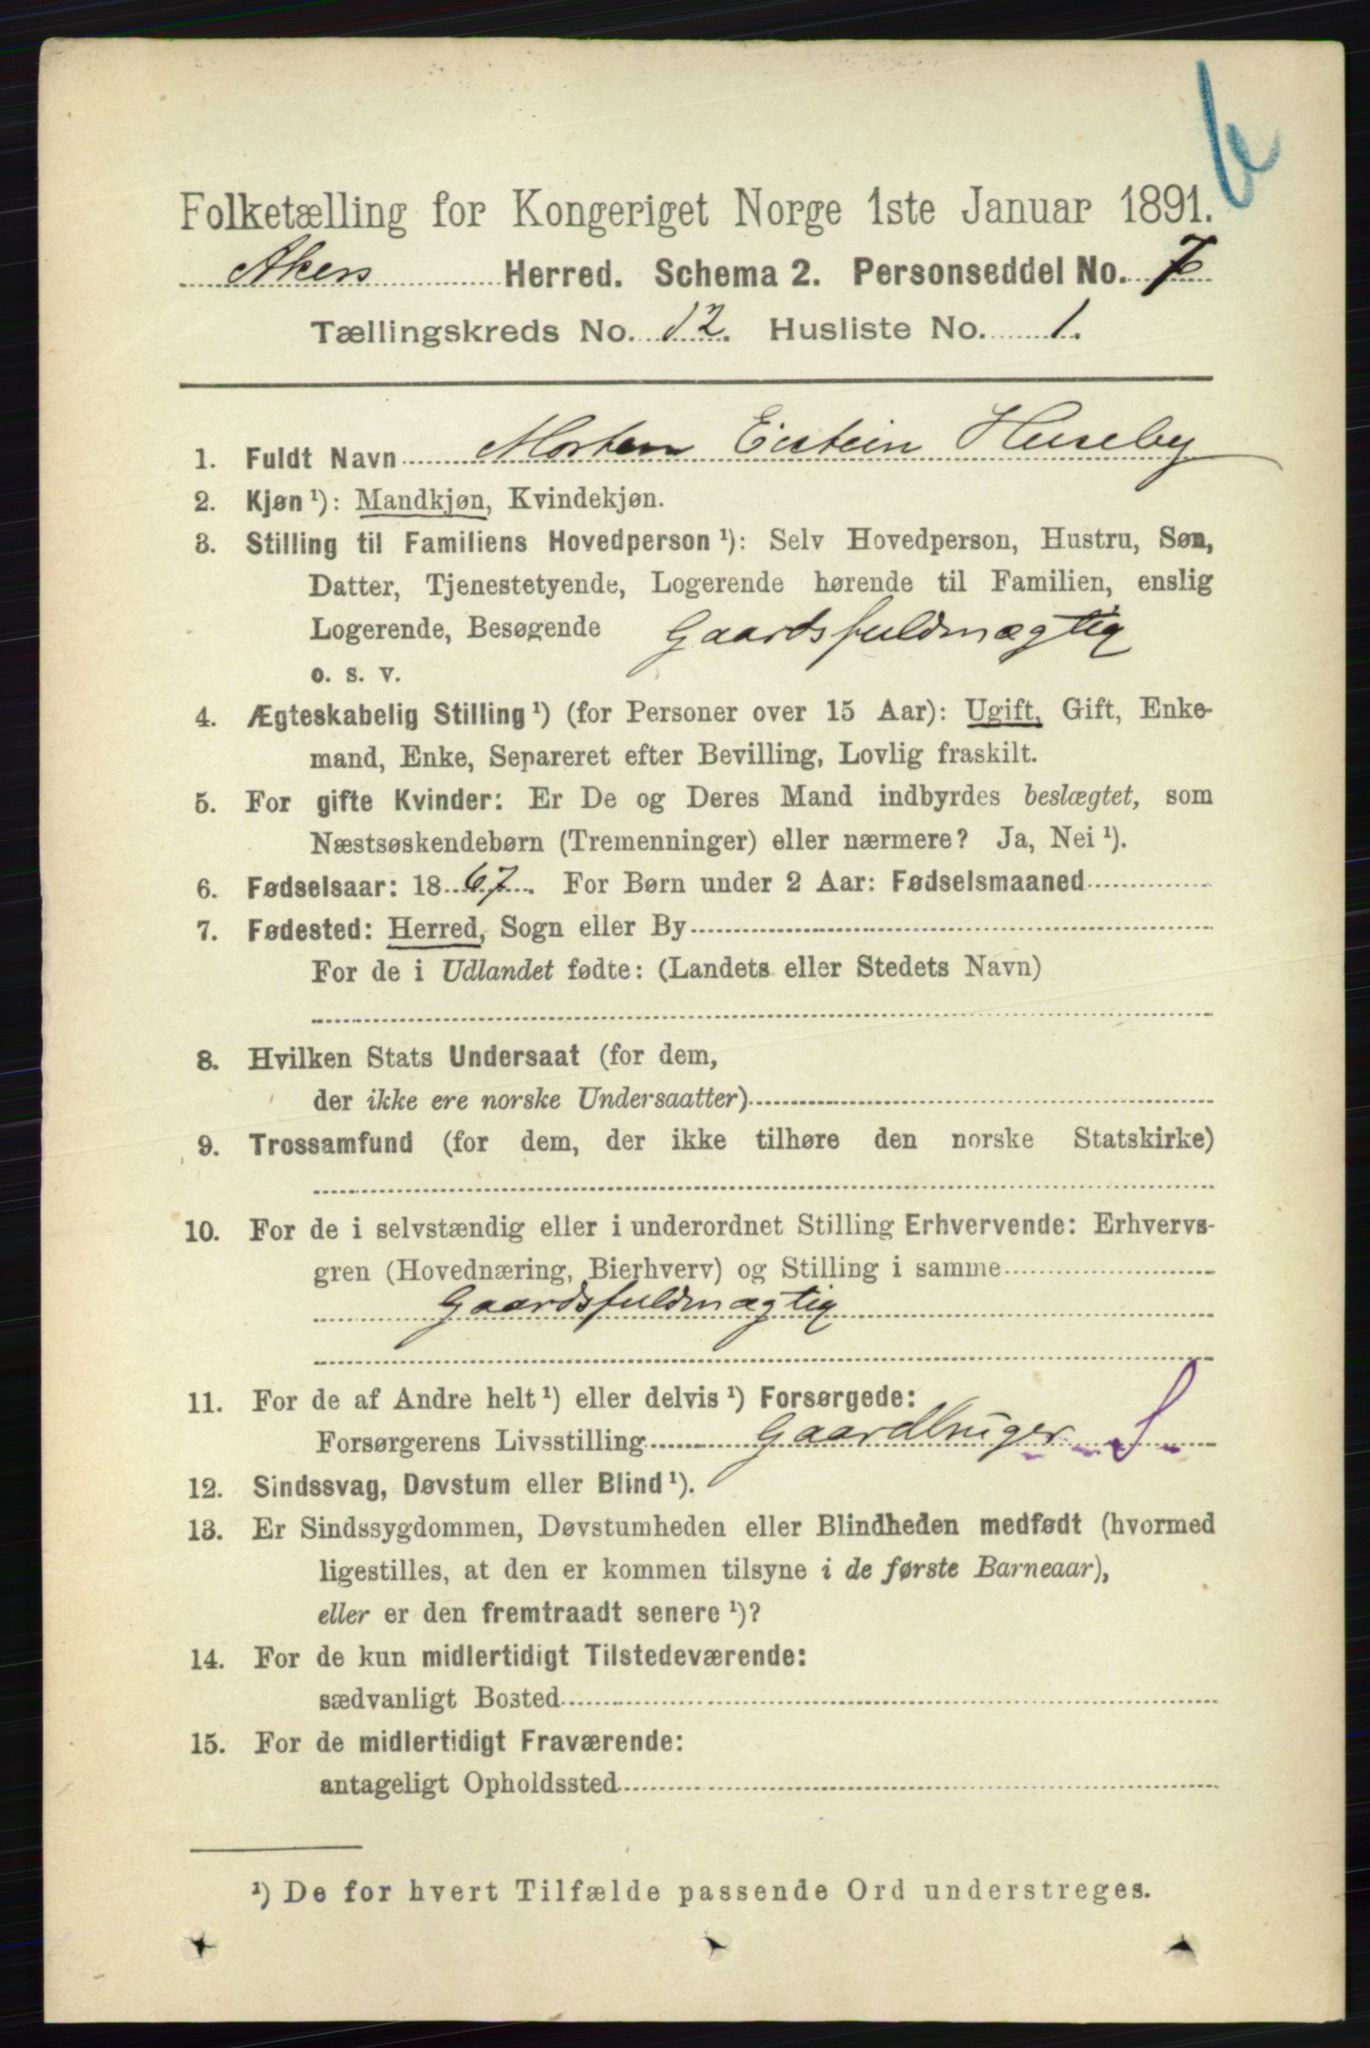 Folketælling for Kongeriget Norge 1ste Januar 1891.
Akers Herred. Schema 2. Personseddel No. 7
Tællingskreds No. 12. Husliste No. 1.
1. Fuldt Navn Morten Eistein Huseby
2. Kjøn ¹): Mandkjøn, Kvindekjøn.
3. Stilling til Familiens Hovedperson ¹): Selv Hovedperson, Hustru, Søn,
Datter, Tjenestetyende, Logerende hørende til Familien, enslig
Logerende, Besøgende Gaardsfuldmægtig
o. s. v.
4. Ægteskabelig Stilling ¹) (for Personer over 15 Aar): Ugift, Gift, Enke-
mand, Enke, Separeret efter Bevilling, Lovlig fraskilt.
5. For gifte Kvinder: Er De og Deres Mand indbyrdes beslægtet, som
Næstsøskendebørn (Tremenninger) eller nærmere? Ja, Nei ¹).
6. Fødselsaar: 1867. For Børn under 2 Aar: Fødselsmaaned
7. Fødested: Herred, Sogn eller By
For de i Udlandet fødte: (Landets eller Stedets Navn)
8. Hvilken Stats Undersaat (for dem,
der ikke ere norske Undersaatter)
9. Trossamfund (for dem, der ikke tilhøre den norske Statskirke)
10. For de i selvstændig eller i underordnet Stilling Erhvervende: Erhvervs-
gren (Hovednæring, Bierhverv) og Stilling i samme
Gaardsfuldmægtig
11. For de af Andre helt ¹) eller delvis ¹) Forsørgede:
Forsørgerens Livsstilling Gaardbruger S
12. Sindssvag, Døvstum eller Blind ¹).
13. Er Sindssygdommen, Døvstumheden eller Blindheden medfødt (hvormed
ligestilles, at den er kommen tilsyne i de første Barneaar),
eller er den fremtraadt senere ¹)?
14. For de kun midlertidigt Tilstedeværende:
sædvanligt Bosted
15. For de midlertidigt Fraværende:
antageligt Opholdssted
¹) De for hvert Tilfælde passende Ord understreges.